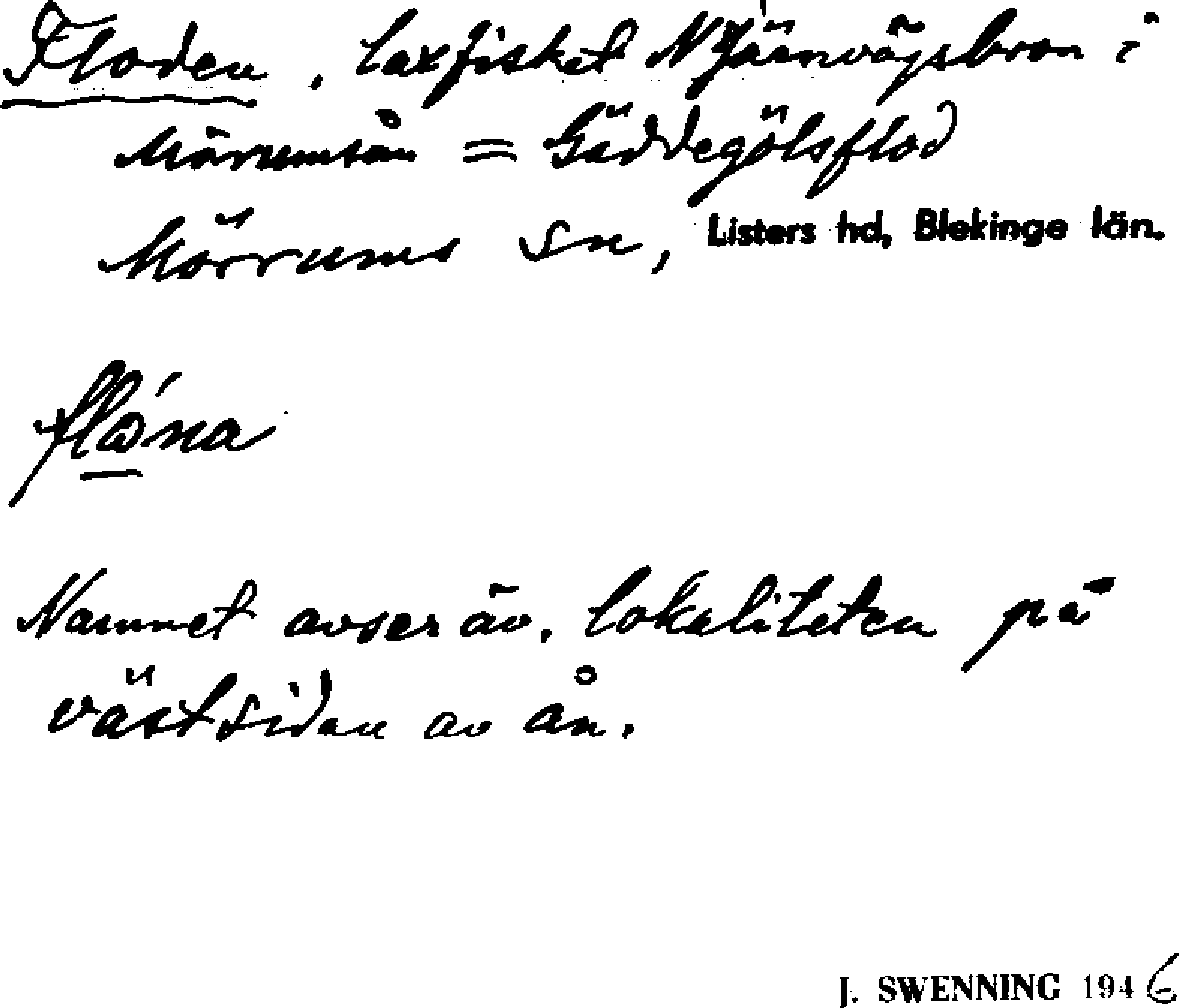 Floden, laxfisket N Järnvägsbron i
Mörrumsån = Gäddegölsflod
Mörrums sn, Listers hd, Blekinge län.
flɷ́na
Namnet avser äv. lokaliteten på
västsidan av ån.
J. SWENNING 1946